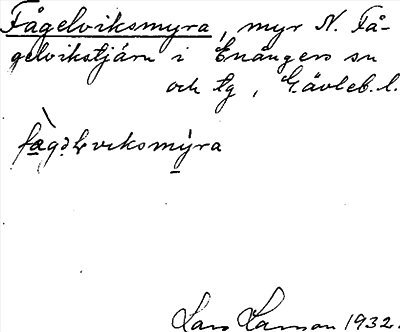 Fågelviksmyra, myr N. Få-
gelvikstjärn i Enångers sn
och tg, Gävleb. l.
fàgəlviksmýra
Lars Larsson 1932.